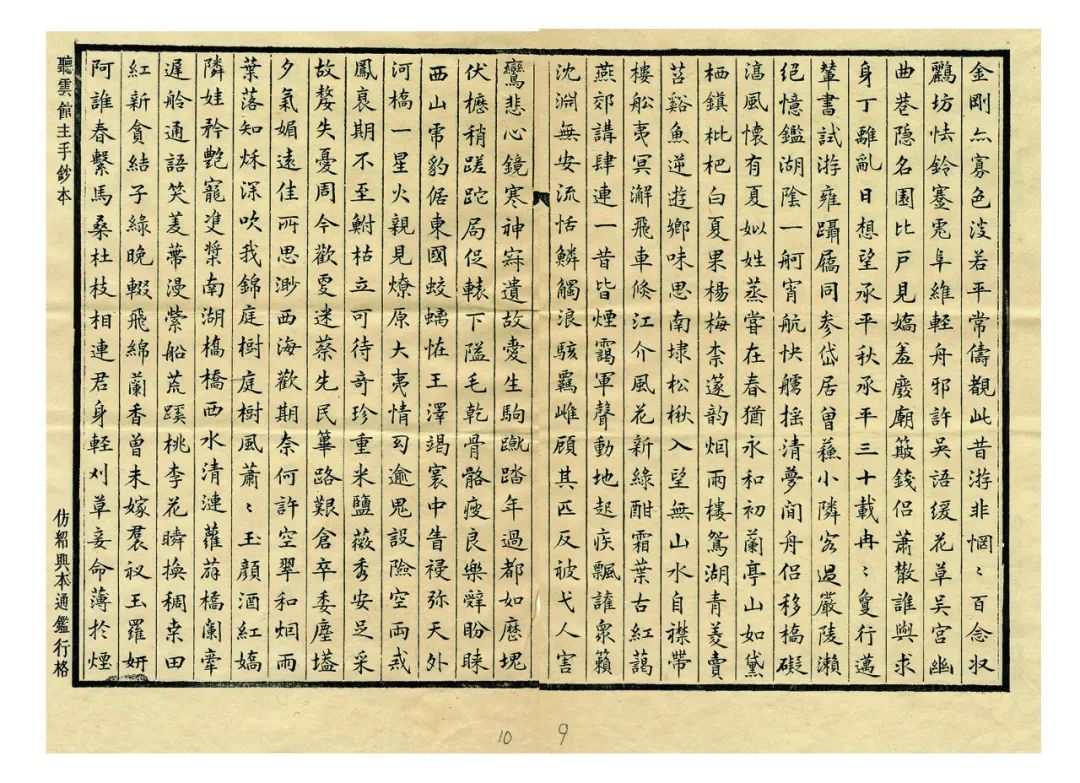 金剛亦寡色波若平常儔覩此昔游非惘〻百念収
鸝坊怯鈴蹇兎阜維輕舟邪許吳語緩花草吳宮幽
曲巷隐名園比戸見嬌羞廢廟簸錢侣蕭散誰與求
身丁離亂日想望承平秋承平三十載冉〻敻行邁
輦書試游雍躡屩同参岱居曾蘓小隣客過嚴陵瀬
絕憶鑑湖陰一舸宵航快艣摇清夢間舟侣移橋礙
渢風懷有夏如姓蒸嘗在春猶永和初蘭亭山如黛
栖鎮枇杷白夏果楊梅柰蓬韵烟雨樓鴛湖青菱賣
苕谿魚逆遊鄉味思南埭松楸入望無山水自襟帶
樓船夷冥澥飛車倏江介風花新綠酣霜葉古紅藹
燕郊講肆連一昔皆煙靄軍聲動地起疾飄謔衆籟
沈淵無安流恬鱗觸浪駭羈雌顧其匹反被弋人害
鸞悲心鏡寒神寐遺故愛生駒蹴踏年過都如歷塊
伏櫪稍蹉跎局促轅下隘毛乾骨骼瘦良樂辤盼睐
西山霧豹倨東國蛟螭恠王澤竭寰中眚祲弥天外
河橋一星火親見燎原大夷情匃逾鬼設險空兩戒
鳳衰期不至鮒枯立可待奇珍重米鹽薇秀安足采
故嫠失憂周今歡受迷蔡先民篳路艱倉卒委塵壒
夕氣媚遠佳所思渺西海歡期奈何許空翠和烟雨
葉落知秌深吹我錦庭樹庭樹風蕭〻玉顔酒紅嬌
隣娃矜艷寵䨇槳南湖橋橋西水清漣蘿蒻橋闌牽
遲舲通語笑菱蔕漫縈船荒蹊桃李花瞬換稠桒田
紅新貪結子綠晚輟飛綿蘭香曽未嫁裠衩玉羅妍
阿誰春繫馬桑杜枝相連君身輕刈草妾命薄扵煙
聽雲館主手鈔本
仿紹興本通鑑行格
10
9